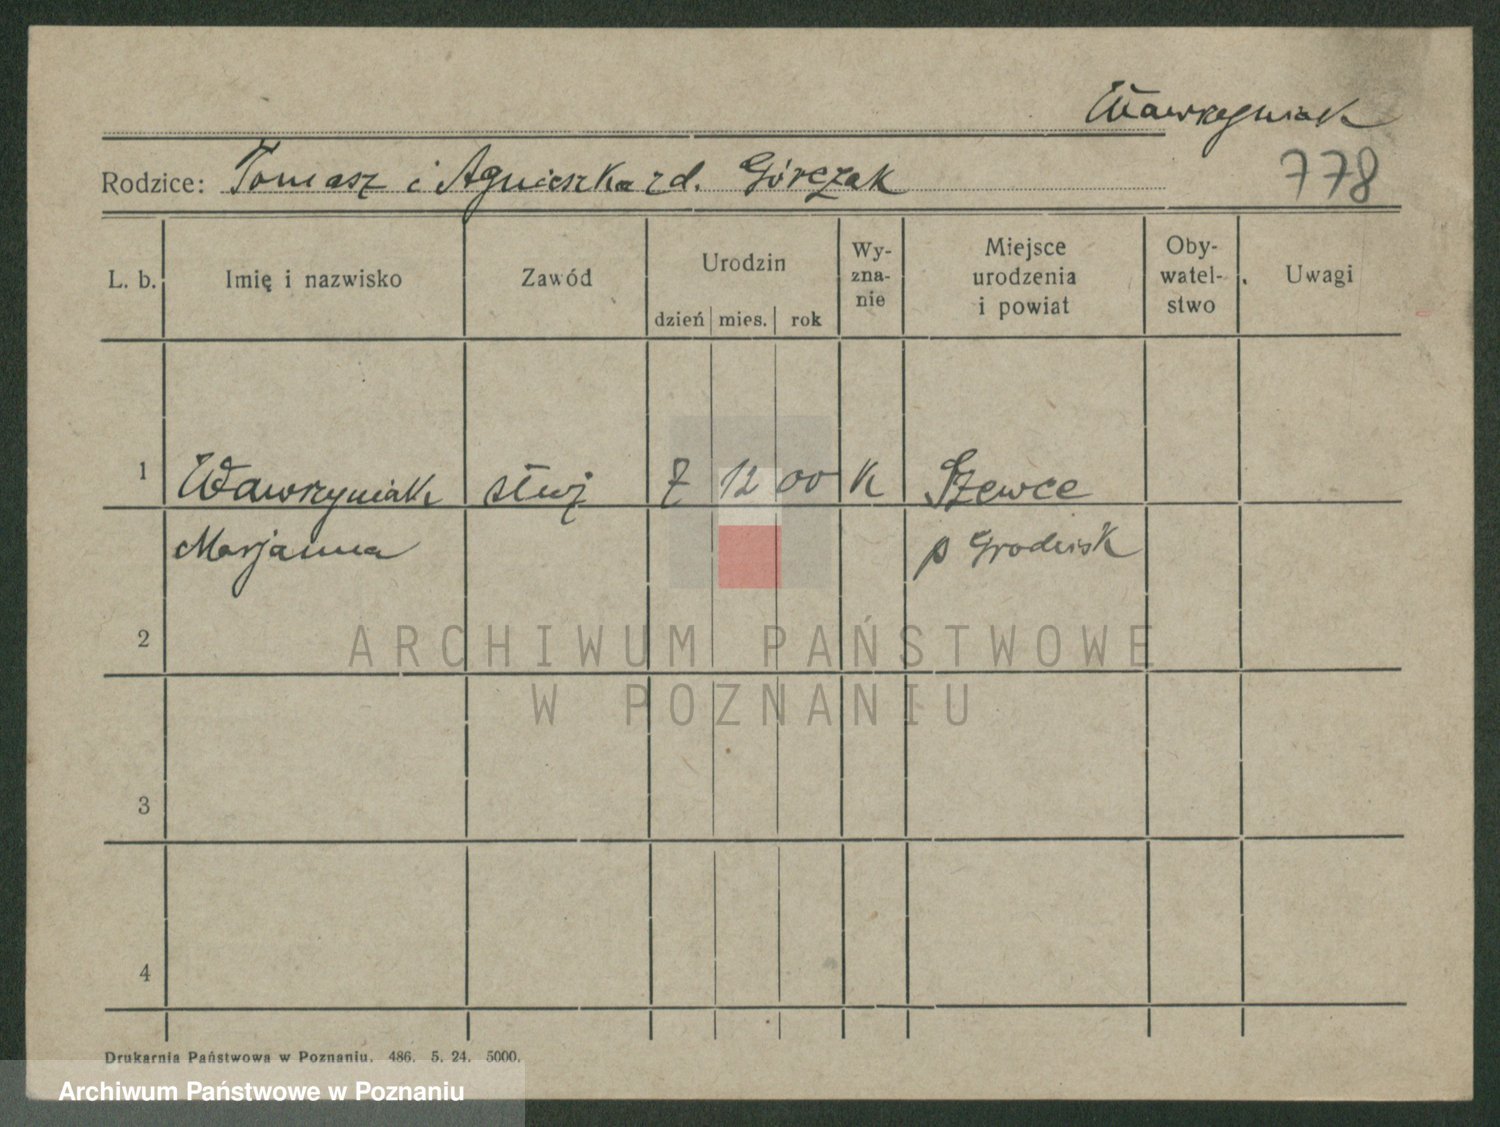 Wawrzyniak
Rodzice: Tomasz i Agnieszka zd. Górczak
778
L. b. Imię i nazwisko Zawód Urodzin dzień mies. rok Wy-zna-nie Miejsce urodzenia i powiat Oby-watel-stwo Uwagi
1 Wawrzyniak służ 7 12 00 K Szewce
Marjanna p Grodzisk
2
ARCHIWUM PAŃSTWOWE
W POZNANIU
3
4
Drukarnia Państwowa w Poznaniu. 486. 5. 24. 5000.
Archiwum Państwowe w Poznaniu